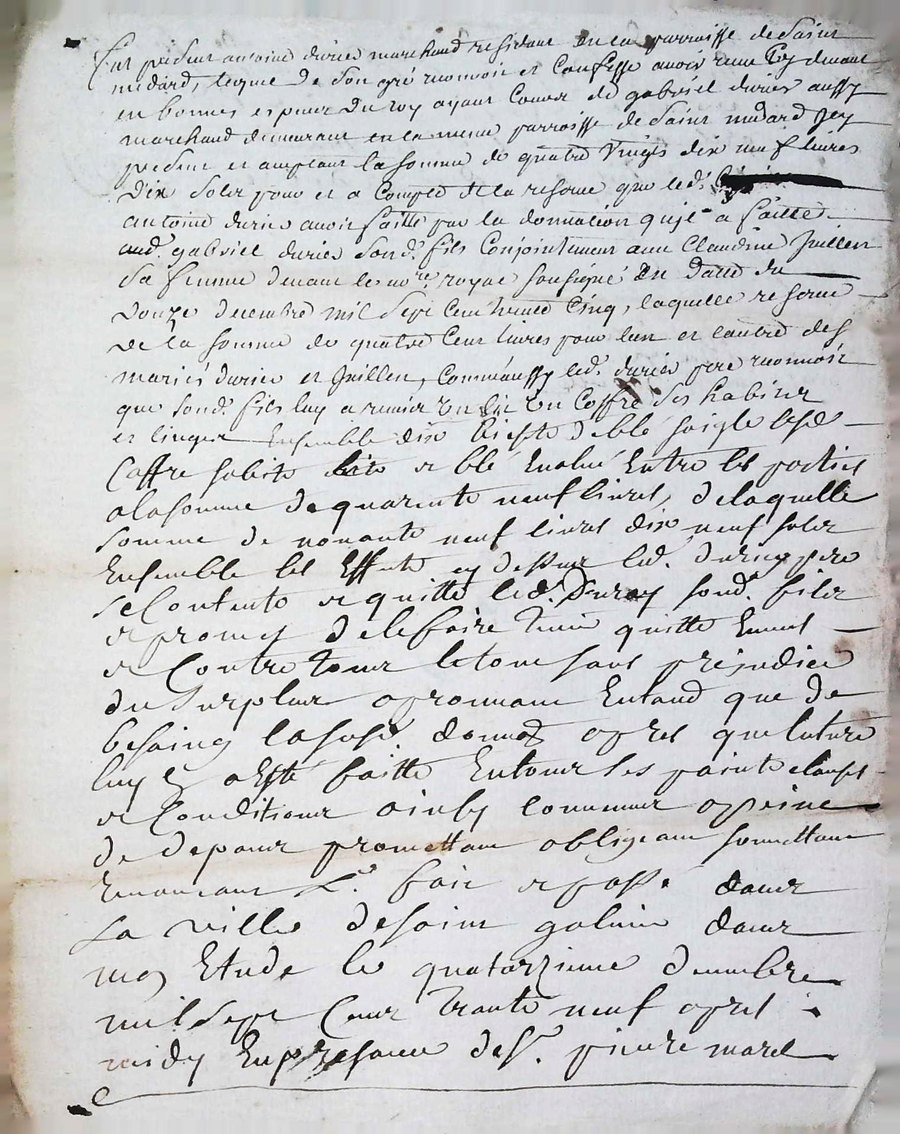 Est présent antoine durieu marchand residant en la parroisse de Saint
medard, lequel de son gré reconnoit et Confesse avoir receu Cy devant
en bonnes especes du roy ayant Cours de gabriel durieu aussy
marchand demeurant en la meme parroisse de Saint medard icy
present et acceptant la somme de quatre Vingts dix neuf livres
Dix Solz pour et a Compte de la reserve que led.
antoine durieu avoit faitte par la donnation qu'il a faitte
aud. gabriel durieu sond. fils Conjointement avec Claudine Juillen
Sa femme devant le no.re royal soussigné En datte du
Douze decembre mil Sept Cent trente Cinq, laquelle reserve
de la somme de quatre Cent livres pour l'un et l'autre des
mariés durieu et Juillen, Comme aussy led. durieu pere reconnoit
que sond. fils luy a remis un lit un Coffre Ses habits
et linges Ensemble dix bichets de blé soigle lesd.
Coffre habits lits et blé Evalué Entre les parties
a la somme de quarente neuf livres, de laquelle
somme de nonante neuf livres dix neuf solz
Ensemble les Effects cy dessus led. durieu pere
se Contente et quitte led. Durieu sond. fils
et promet de le faire tenir quitte Envers
et Contre tous le tout sans prejudice
du Surplus aprouvant Entand que de
besoing la susd. donnaon apres que lecture
luy En a Esté faitte En tous ses points clauses
et Conditions ainsy Convenus a peine
de depans promettant obligeant soumettant
renonçant &.a fait et passé dans
La ville de saint galmier dans
mon Etude le quatorzieme decembre
mil sept Cent trante neuf apres
midy En presence de S.r pierre morel